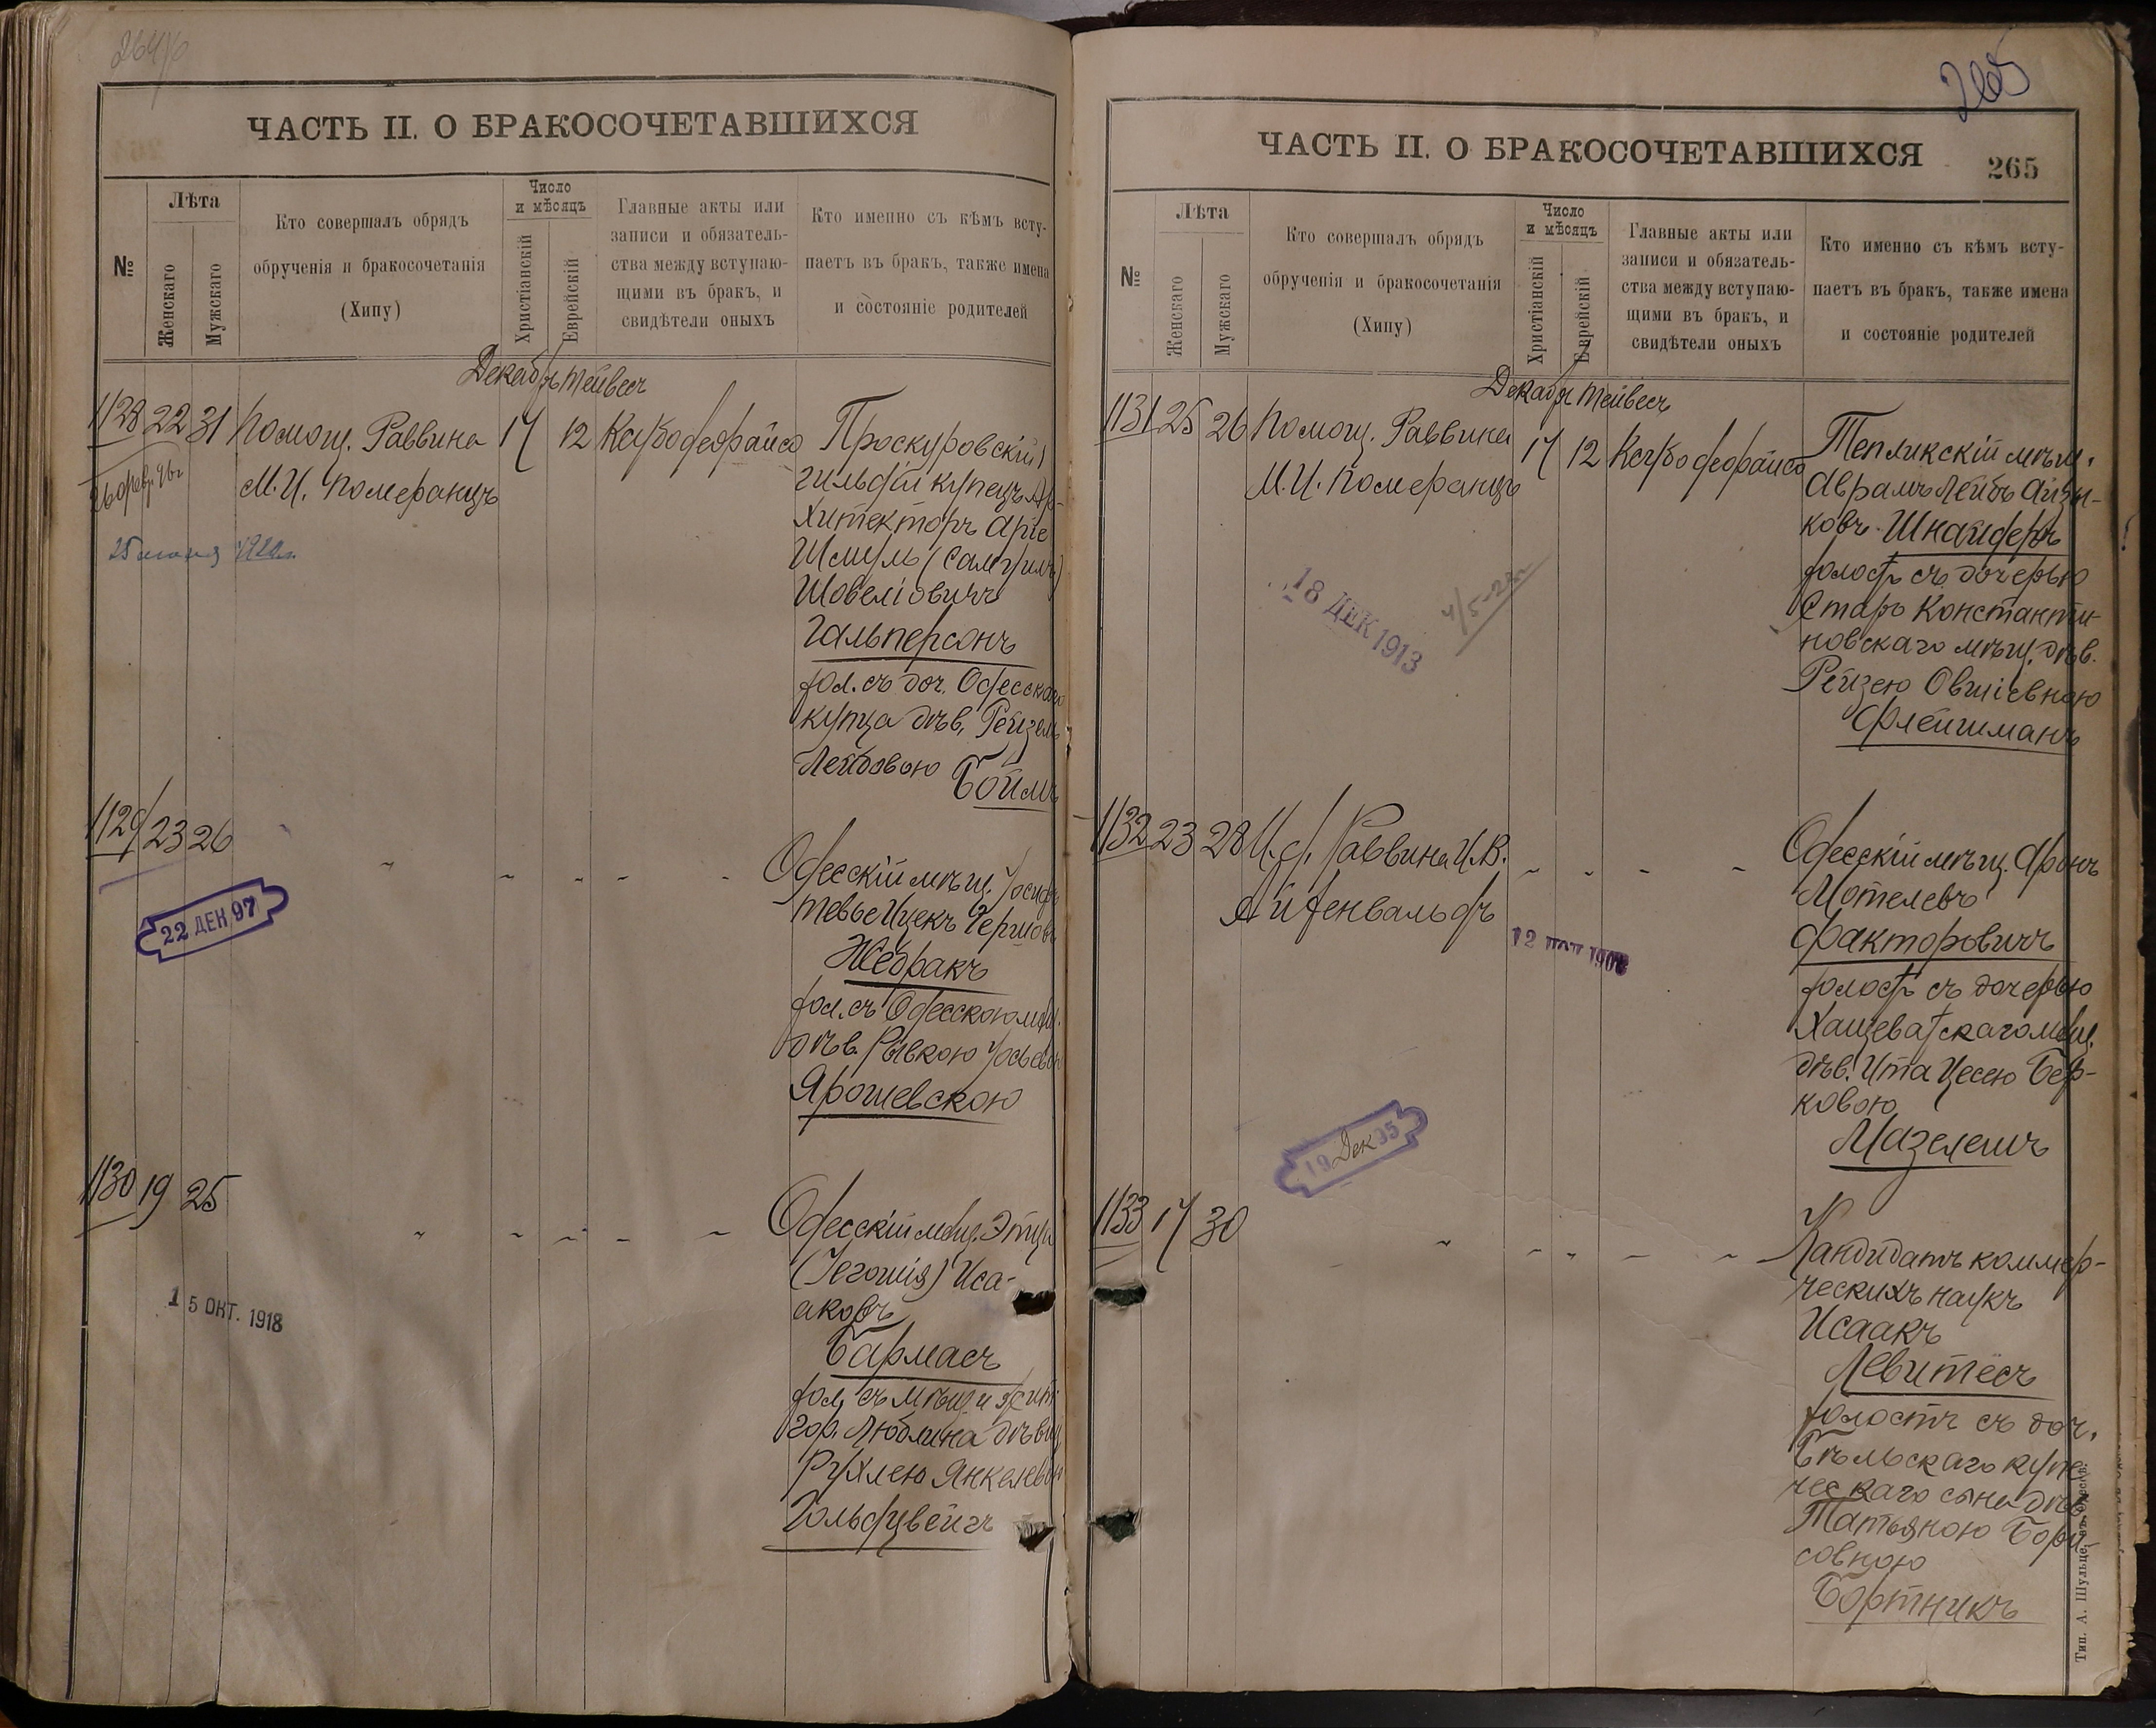 ЧАСТЬ II. О БРАКОСОЧЕТАВШИХСЯ
№
Лѣта
Женскаго
Мужскаго
Кто совершалъ обрядъ
обрученія и бракосочетанія
(Хипу)
Число
и мѣсяцъ
Христіанскій
Еврейскій
Главные акты или
записи и обязатель-
ства между вступаю-
щими въ бракъ, и
свидѣтели оныхъ
Кто именно съ кѣмъ всту-
паетъ въ бракъ, также имена
и состояніе родителей
Декабрь Тейвесъ
1128 22 31 Помощ. Раввина 17 12
М. И. Померанцъ
Проскуровскій
гильдіи купецъ Ар-
хитекторъ Аріе
Шмуль (Самуилъ)
Шовеліовичъ
Гальперсонъ
хол. съ доч. Одесскаго
купца дѣв. Рейзель
Лейбовою Боймъ
1129 23 26
22 ДЕК 97
Одесскій мѣщ. Іосифъ
Тевье Ицекъ Гершовъ
Жебракъ
хол. съ Одесскою мѣщ.
дѣв. Рывкою
Ярошевскою
1130 19 25
15 ОКТ. 1918
Одесскій мѣщ.
Иса-
аковъ
Бармасъ
хол. съ мѣщ. и жит.
гор. Люблина дѣвиц
Рухлею Янкелевою
Гольдцвейгъ
265
ЧАСТЬ II. О БРАКОСОЧЕТАВШИХСЯ
265
№
Лѣта
Женскаго
Мужскаго
Кто совершалъ обрядъ
обрученія и бракосочетанія
(Хипу)
Число
и мѣсяцъ
Христіанскій
Еврейскій
Главные акты или
записи и обязатель-
ства между вступаю-
щими въ бракъ, и
свидѣтели оныхъ
Кто именно съ кѣмъ всту-
паетъ въ бракъ, также имена
и состояніе родителей
Декабрь Тейвесъ
1131 25 26 Помощ. Раввина 17 12
М. И. Померанцъ
18 ДЕК 1913
Тепликскій мѣщ.
Аврамъ Лейбъ Айзи-
ковъ Шнайдеръ
холост съ дочерью
Старо Константи-
новскаго мѣщ. дѣв.
Рейзею Овшіевною
Флейшманъ
1132 23 28 И. д. Раввина И. В.
Айзенвальдъ
Одесскій мѣщ. Аронъ
Мотелевъ
Факторовичъ
холост съ дочерью
Хащеватскаго мѣщ.
дѣв. Ита Цесею Бер-
ковою
Мазелешъ
19 Дек 95
1133 17 30
Кандидатъ коммер-
ческихъ наукъ
Исаакъ
Левитесъ
холостъ съ доч.
Бѣльскаго купе
ческаго сына дѣв.
Татьяною Бори
совною
Бортникъ
Тип. А. Шульце, въ Одессѣ.